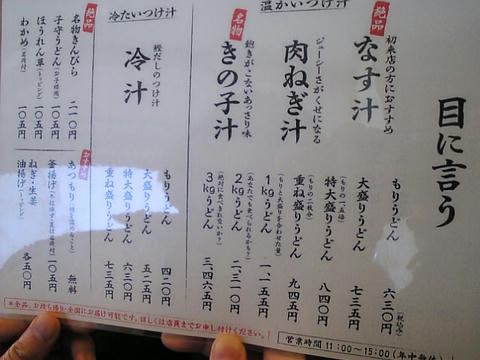 目に言う
温かいつけ汁
絶品
初来店の方におすすめ
なす汁
ジューシーさがくせになる
肉ねぎ汁
名物
飽きがこないあっさり味
きの子汁
もりうどん 六三〇円(税込み)
大盛りうどん 七三五円
特大盛りうどん 八四〇円
重ね盛りうどん 九四五円
1kgうどん 一、一五五円
2kgうどん 二、二一〇円
3kgうどん 三四六五円
冷たいつけ汁
鰹だしのつけ汁
冷汁
もりうどん 四二〇円
大盛りうどん 五二五円
特大盛りうどん 六三〇円
重ね盛りうどん 七三五円
絶品
名物きんぴら 二一〇円
子守うどん(お子様用) 一〇五円
ほうれん草(トッピング) 一〇五円
わかめ 一〇五円
あつもり 無料
釜揚げ 一〇五円
ねぎ・生姜
油揚げ(トッピング) 各五〇円
*全品、お持ち帰り・全国にお届け可能です。詳しくは店員までお申し付けください。
営業時間 11:00〜15:00(年中無休)